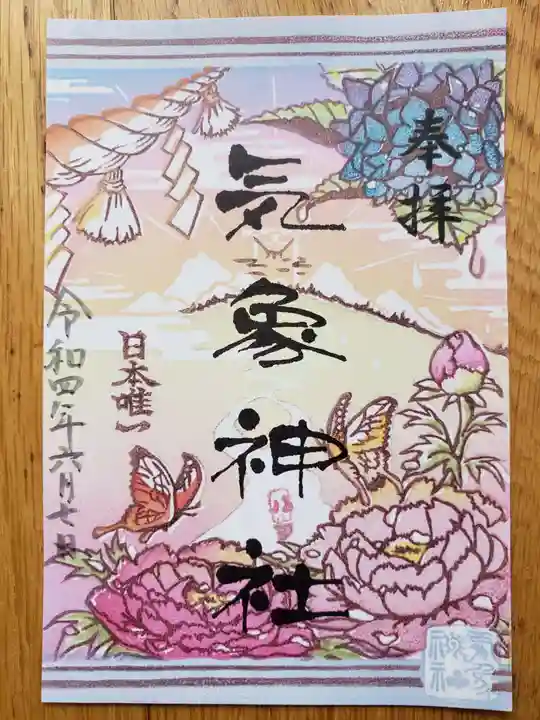 奉拝
気象神社
日本唯一
令和四年六月七日